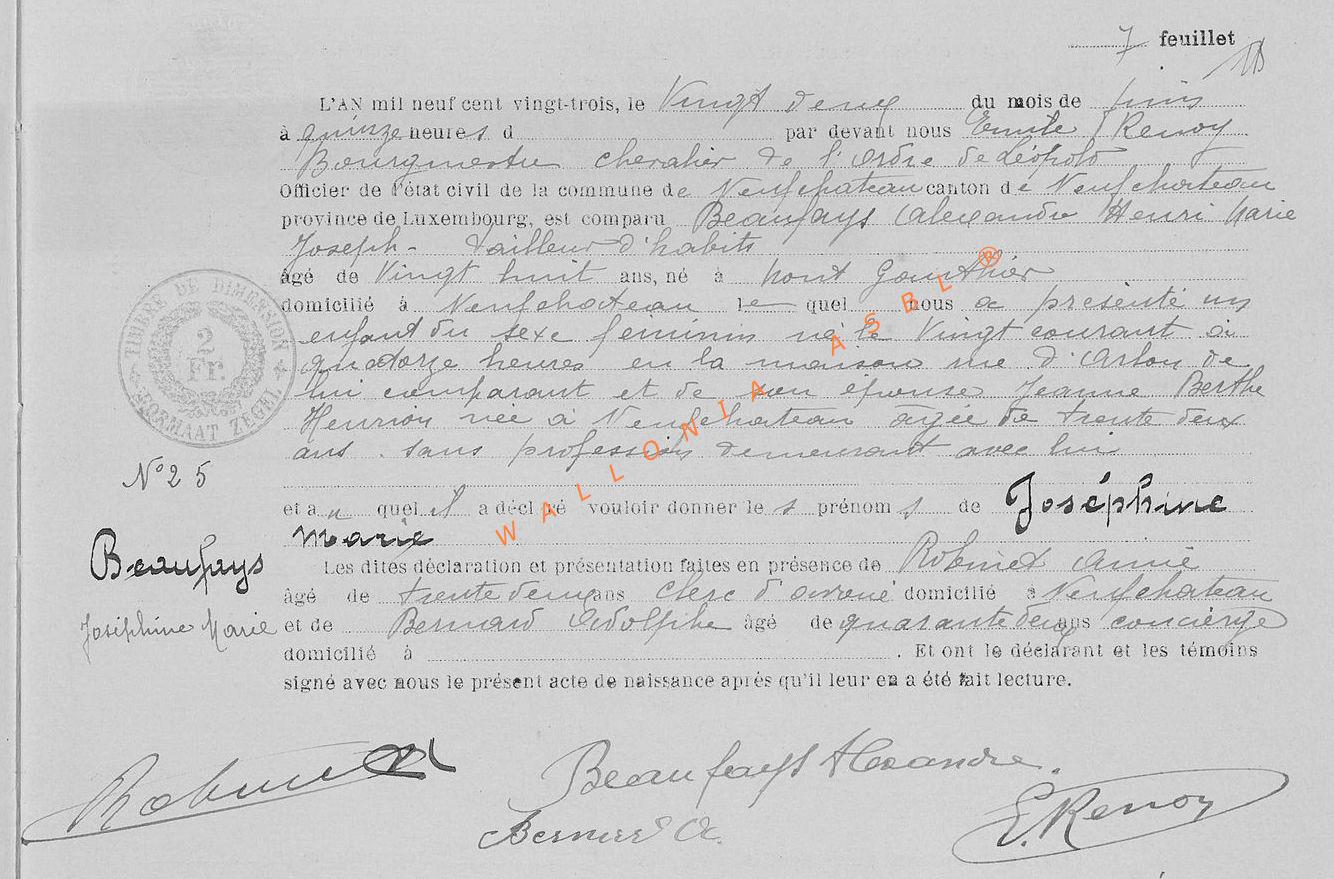 7 feuillet
L'AN mil neuf cent vingt-trois, le Vingt deux du mois de juin
à quinze heures d par devant nous Emile Renoy
Bourgmestre chevalier de l'Ordre de Léopold
Officier de l'état civil de la commune de Neufchateau canton de Neufchateau
province de Luxembourg, est comparu Beaufays Alexandre Henri Marie
Joseph - tailleur d'habits
âgé de Vingt huit ans, né à Mont Gauthier
domicilié à Neufchateau le quel nous a présenté un
enfant du sexe feminin né le Vingt courant à
quatorze heures en la maison rue d'Arlon de
lui comparant et de son épouse Jeanne Berthe
Henrion née à Neufchateau agée de trente deux
ans. sans profession demeurant avec lui
N° 25
et au quel il a déclaré vouloir donner les prénoms de Joséphine
Marie
Beaufays
Joséphine Marie
Les dites déclaration et présentation faites en présence de Robinet Aimé
âgé de trente deux ans clerc d'avoué domicilié à Neufchateau
et de Bernard Adolphe âgé de quarante deux ans concièrge
domicilié à . Et ont le déclarant et les témoins
signé avec nous le présent acte de naissance après qu'il leur en a été fait lecture.
Robinet
Beaufays Alexandre.
Bernard A.
E. Renoy
TIMBRE DE DIMENSION
2
Fr.
FORMAAT ZEGEL
WALLONIA ASBL ®